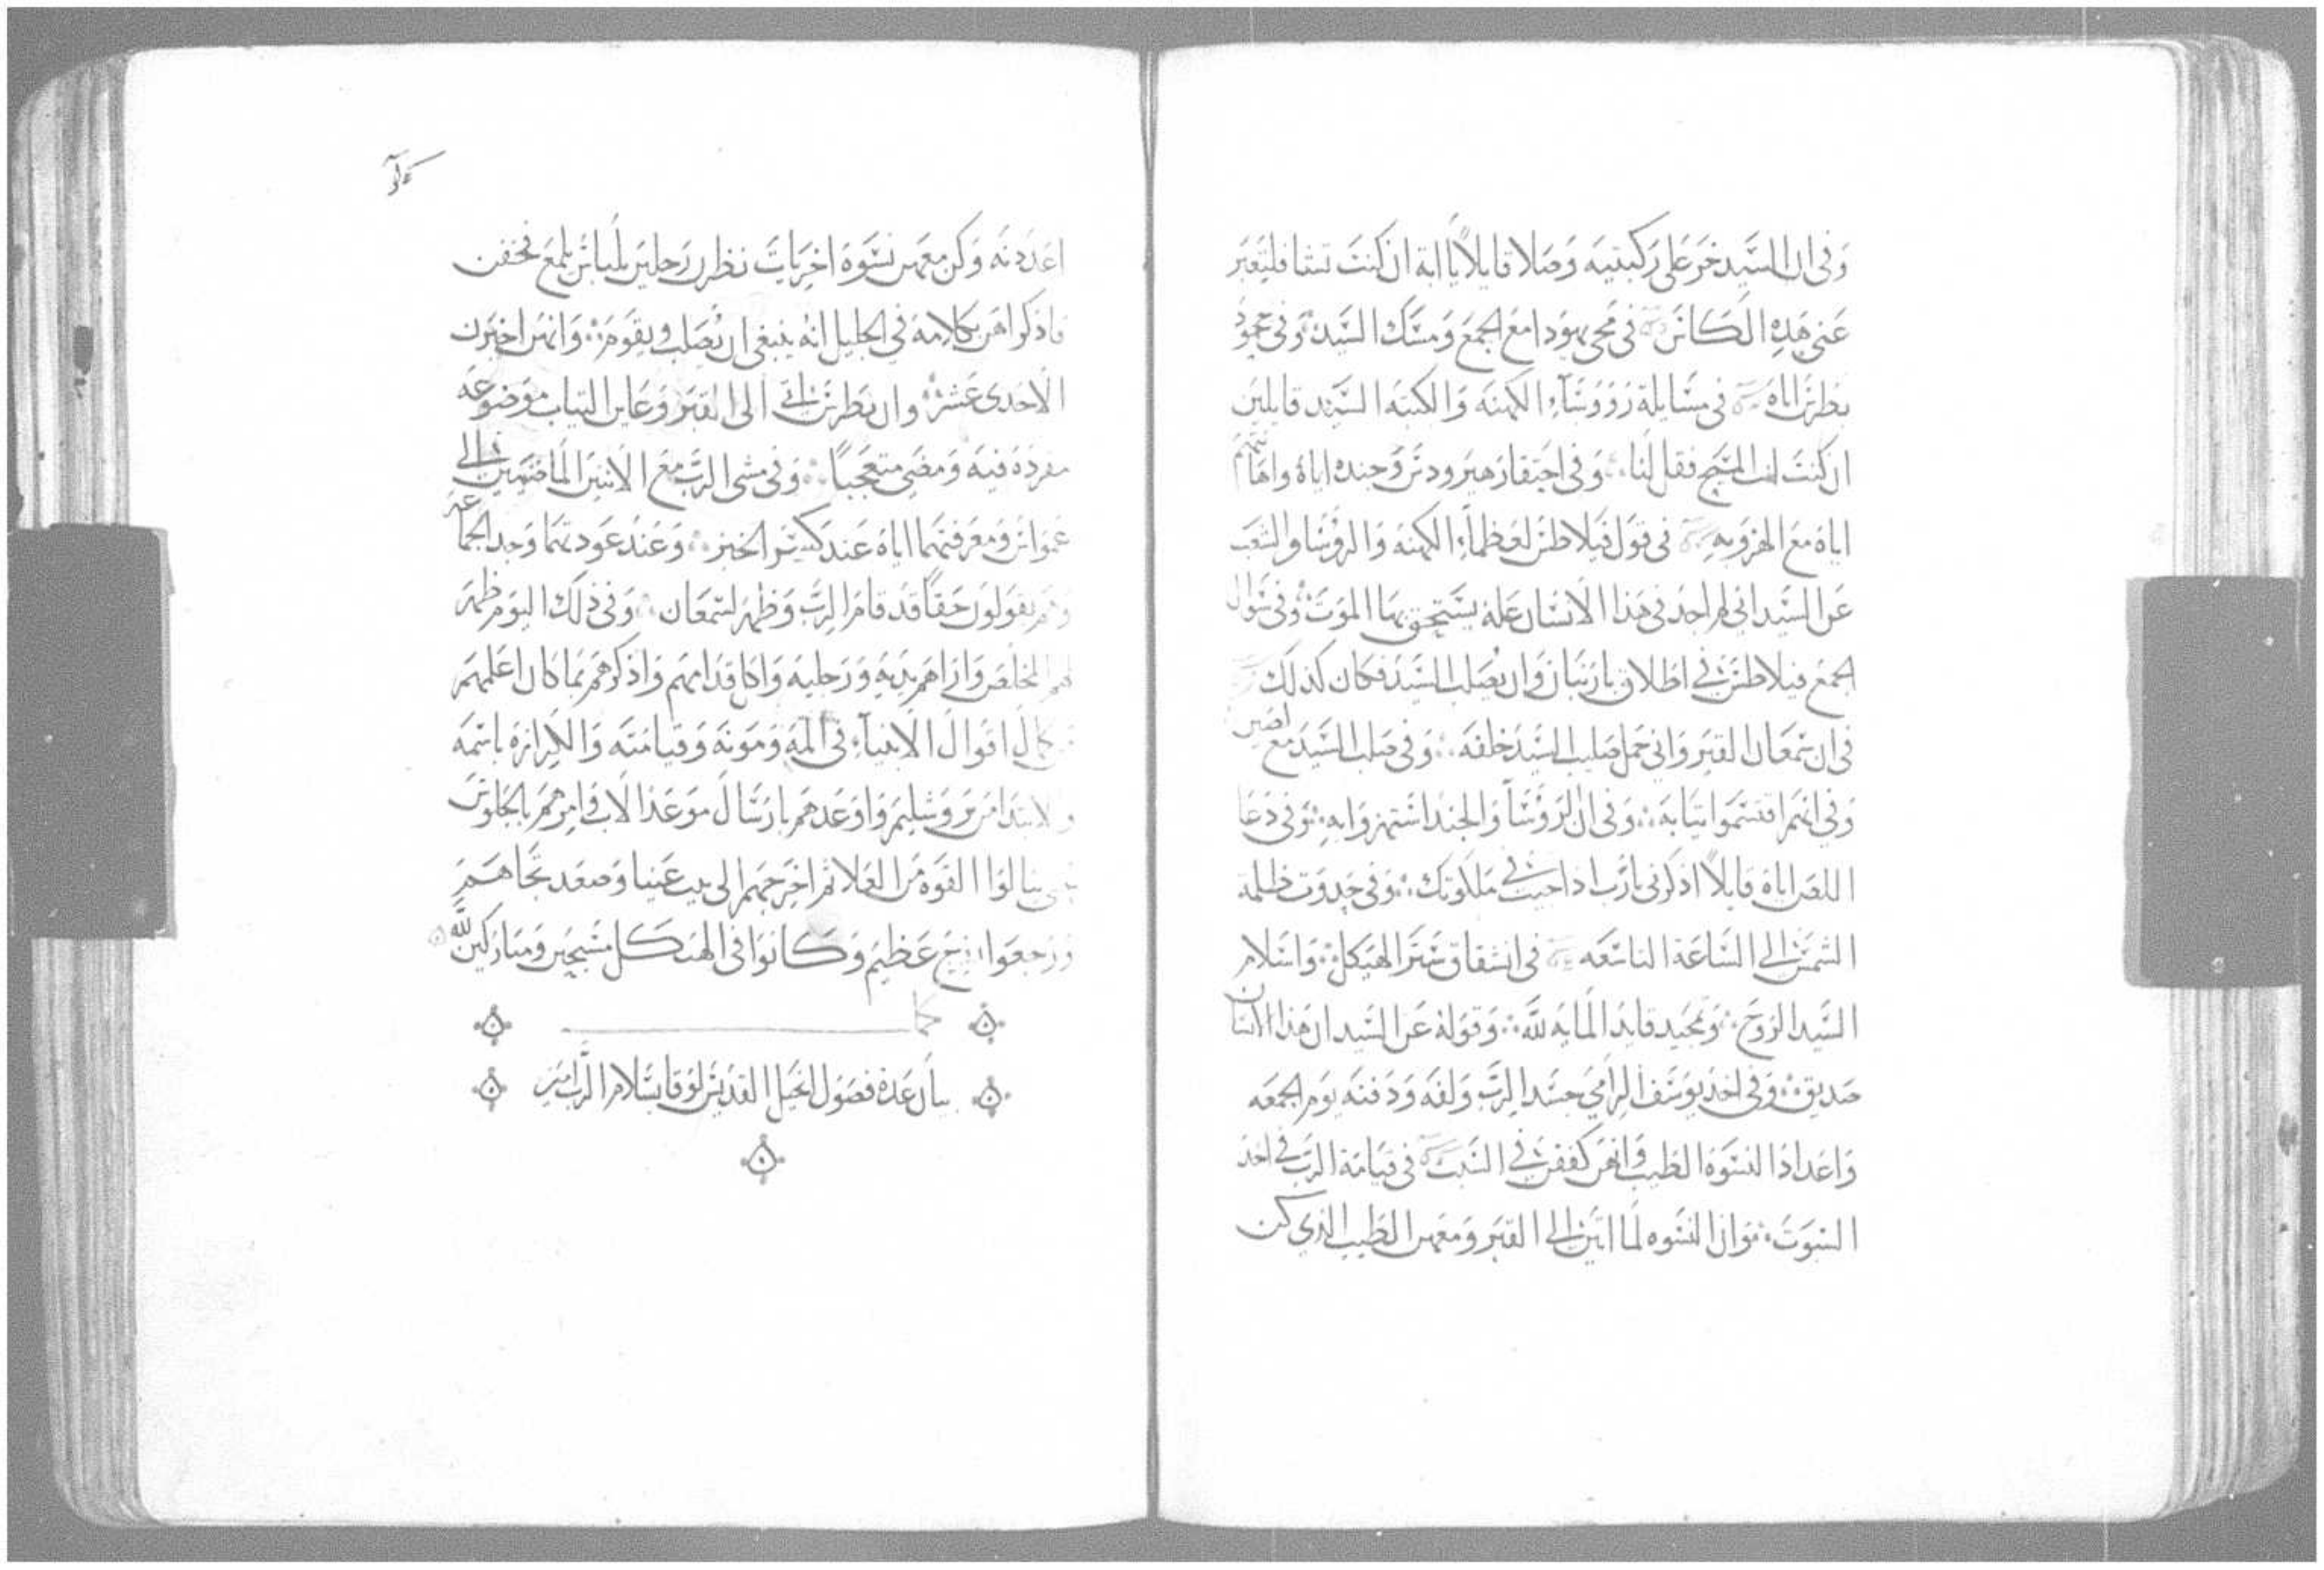 وفي ان السيد خر على ركبتيه وصلا قايلا يا ابة ان كنت تشا فليعبر
عني هذه الكاس في مجي يهودا مع الجمع ومسك السيد وفي جحود
بطرس اياه في مسايلة رووساء الكهنه والكتبه السيد قايلين
ان كنت انت المسيح فقل لنا وفي احتقار هيرودس وجنده اياه واهانتهم
اياه مع الهزو به في قول فيلاطس لعظماء الكهنه والروسا والشعب
عن السيد اني لم اجد في هذا الانسان علة يستحق بها الموت وفي سوال
الجمع فيلاطس في اطلاق بارنبان وان يصلب السيد فكان كذلك
في ان سمعان القيرواني حمل صليب السيد خلفه وفي صلب السيد مع لصين
وفي انهم اقتسموا تيابه وفي ان الروسا والجند استهزوا به وفي دعا
اللص اياه قايلا اذكرني يا رب اذا جيت في ملكوتك وفي حدوت ظلمة
الشمس الى الساعة التاسعه في انشقاق ستر الهيكل واسلام
السيد الروح وتمجيد قايد المايه لله وقوله عن السيد ان هذا الانسان
صديق وفي اخذ يوسف الرامي جسد الرب ولفه ودفنه يوم الجمعه
واعداد النسوة الطيب وانهن كففن في السبت في قيامة الرب في احد
السبوت وان النسوه لما اتين الى القبر ومعهن الطيب الذي كن
اعددنه وكن معهن نسوة اخريات نظرن رجلين بلباس يلمع فخفن
فاذكراهن بكلامه في الجليل انه ينبغي ان يصلب ويقوم وانهن اخبرن
الاحدى عشر وان بطرس اتى الى القبر وعاين التياب موضوعه
مفرده فيه ومضى متعجبا وفي مشي الرب مع الاثنين الماضيين الى
عمواس ومعرفتهما اياه عند كسر الخبز وعند عودتهما وجدا الجماعه
وهم يقولون حقا قد قام الرب وظهر لسمعان وفي ذلك اليوم ظهر
لهم المخلص واراهم يديه ورجليه واكل قدامهم واذكرهم بما كان اعلمهم
كمال اقوال الانبياء في المه وموته وقيامته والكرازه باسمه
والابتدا من يروشليم واوعدهم بارسال موعد الاب وامرهم بالجلوس
حتى ينالوا القوه من العلا ثم اخرجهم الى بيت عنيا وصعد تجاههم
ورجعوا بفرح عظيم وكانوا في الهيكل مسبحين ومباركين لله
كمل عدة فصول انجيل القديس لوقا بسلام الرب امين